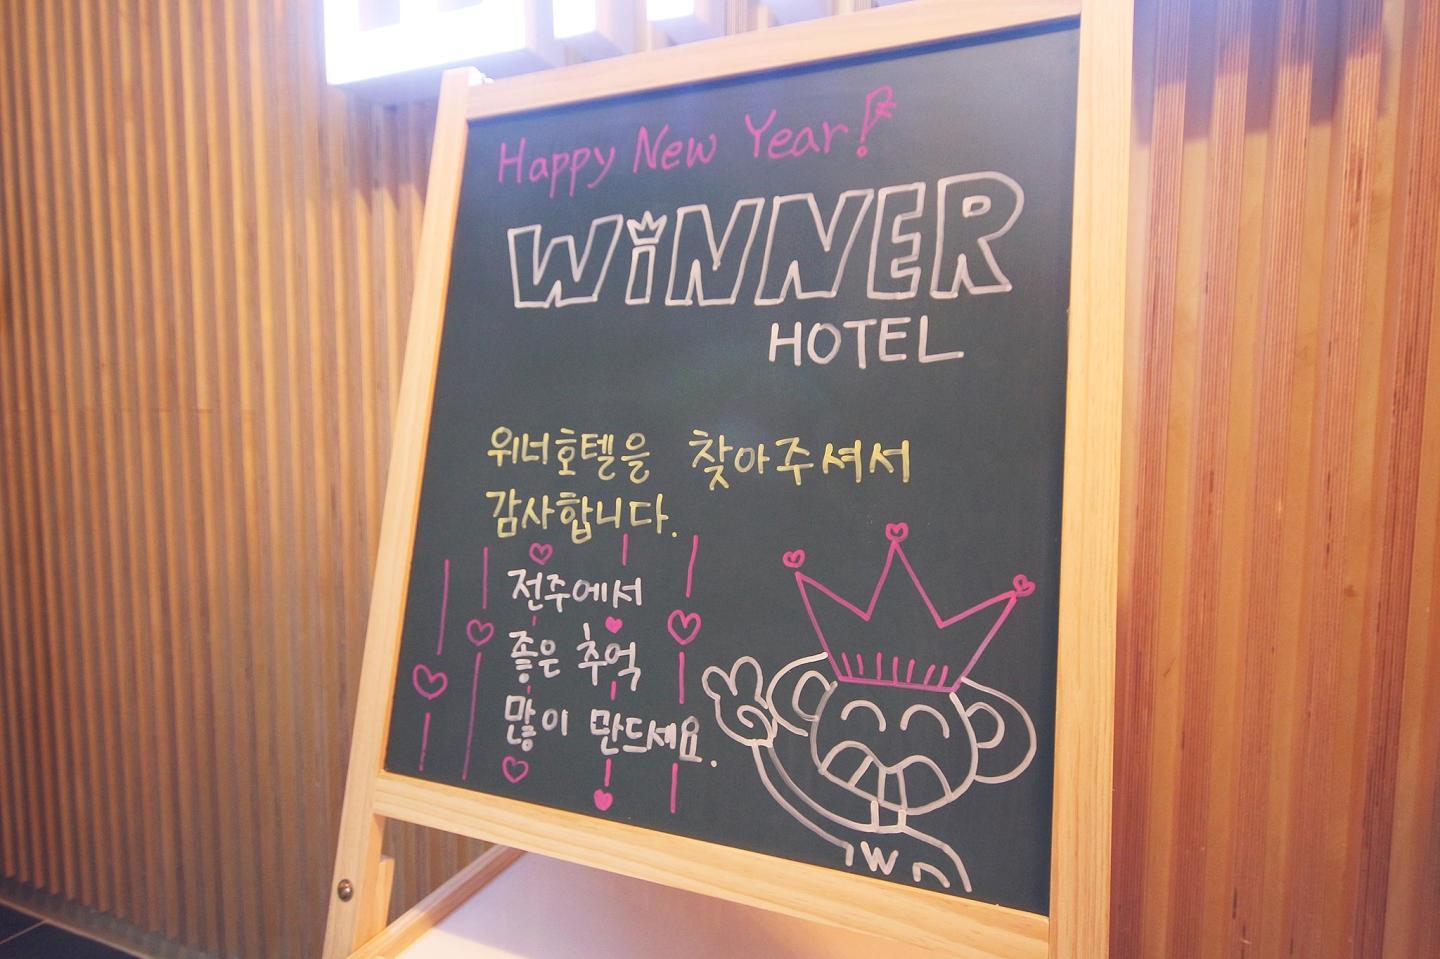 Happy New Year!
WiNNER
HOTEL
위너호텔을 찾아주셔서
감사합니다.
전주에서
좋은 추억
많이 만드세요.
W